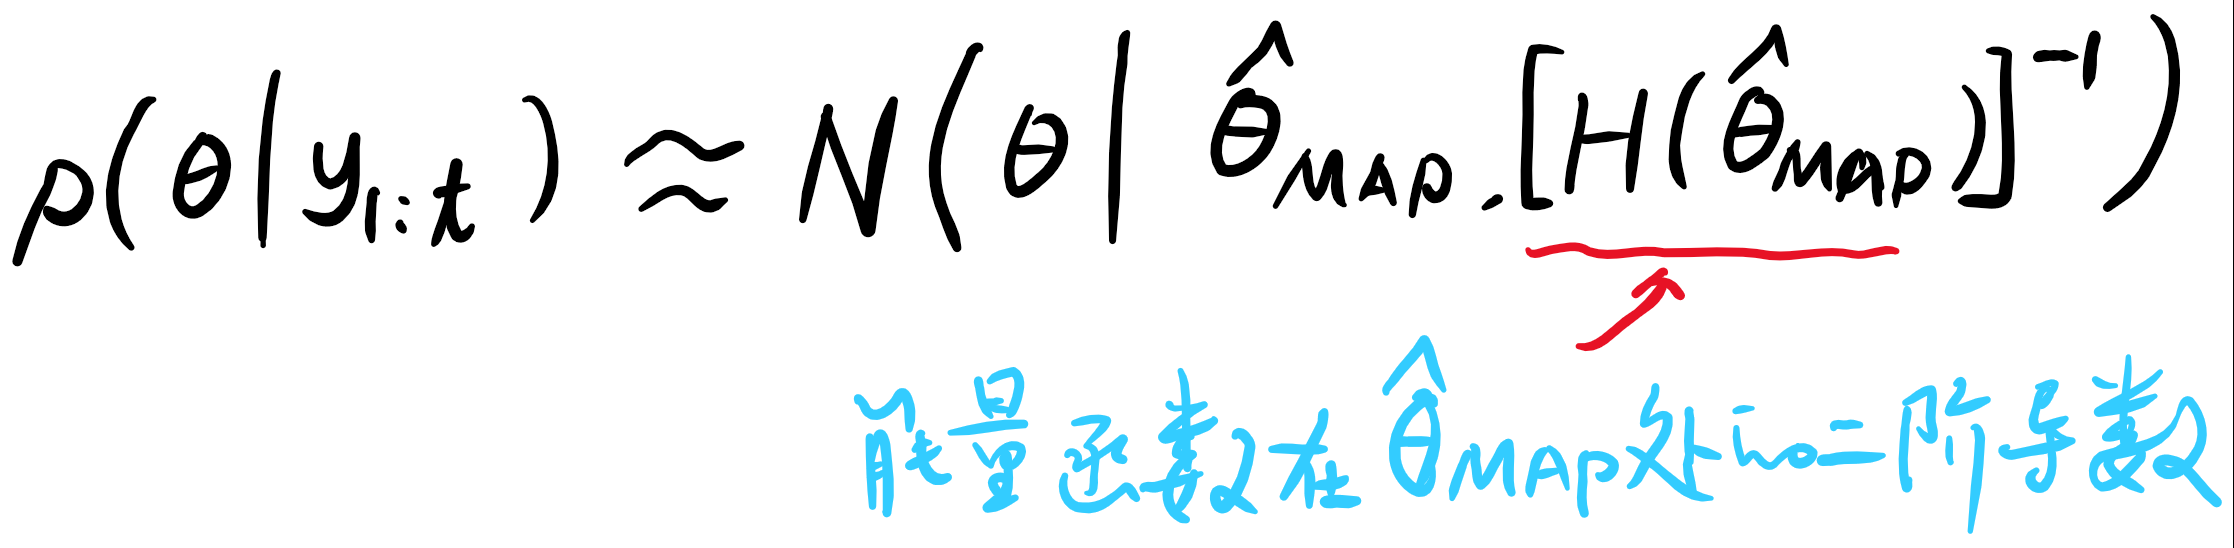 p(θ|y₁:t) ≈ N(θ| θ̂MAP, [H(θ̂MAP)]⁻¹)
能量函数在θ̂MAP处的二阶导数